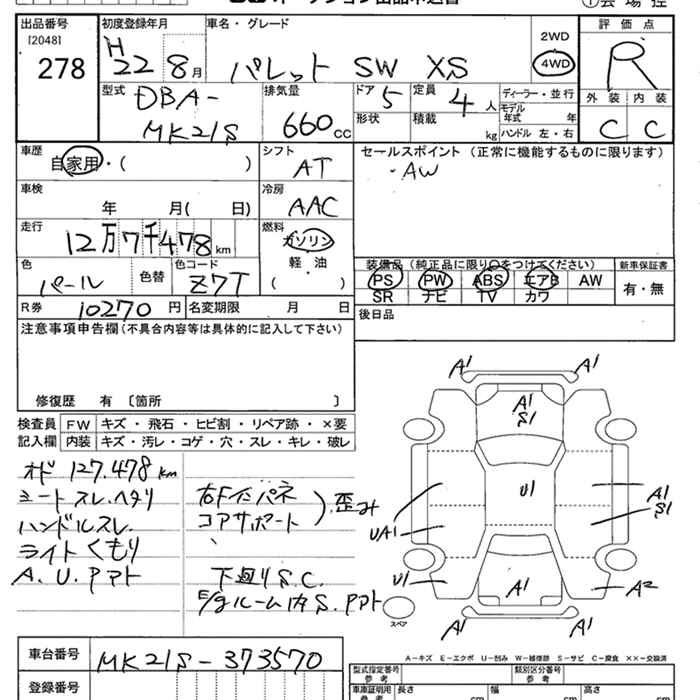 出品番号
[2048]
278
初度登録年月
H 22 8月
車名・グレード
パレット SW XS
2WD
4WD
評価点
R
外装 内装
C C
型式
DBA-
MK21S
排気量
660cc
ドア 5
形状
定員 4 人
積載 kg
ディーラー・並行
モデル年式 年
ハンドル 左・右
車歴
自家用・( )
シフト
AT
セールスポイント (正常に機能するものに限ります)
・AW
車検
年 月( 日)
冷房
AAC
走行
12万7千478km
燃料
ガソリン
軽・油
( ・ )
色
パール
色替
色コード
Z7T
装備品 (純正品に限り○をつけてください)
PS PW ABS エアB AW
SR ナビ TV カワ
新車保証書
有・無
R券 10270 円
名変期限 月 日
後日品
注意事項申告欄(不具合内容等は具体的に記入して下さい)
修復歴 有 〔箇所 〕
検査員記入欄
FW キズ・飛石・ヒビ割・リペア跡・×要
内装 キズ・汚レ・コゲ・穴・スレ・キレ・破レ
オド 127.478km
シート スレ.ヘタリ
ハンドルスレ.
ライトくもり
A.U.P
右Fインパネ
コアサポート
歪み
下廻りS.C.
E/gルーム内S.
A1 A1
A1
S1
U1
UA1
A1
S1
U1
A1
A2
A1 A1
スペア
A-キズ E-エクボ U-凹み W-補修跡 S-サビ C-腐食 ××-交換済
車台番号
MK21S-373570
登録番号
型式指定番号
参考
類別区分番号
参考
車庫証明用
参考
長さ cm
幅 cm
高さ cm